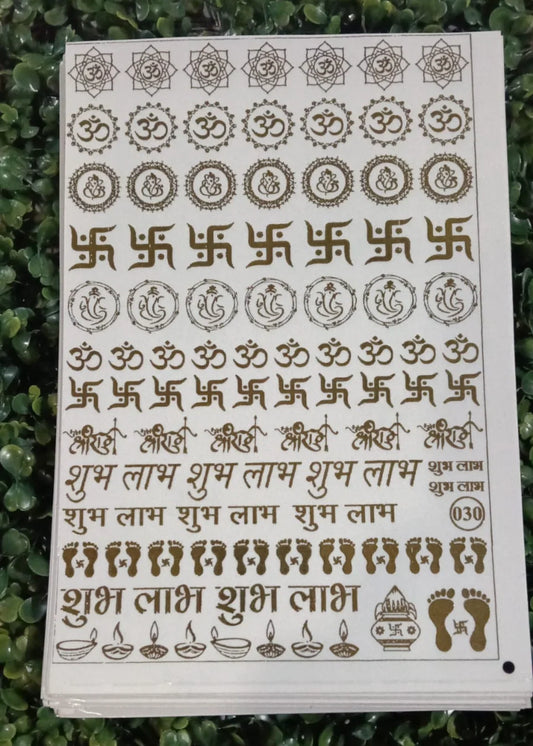 ॐ ॐ ॐ ॐ ॐ ॐ ॐ
ॐ ॐ ॐ ॐ ॐ ॐ ॐ
ॐ ॐ ॐ ॐ ॐ ॐ ॐ ॐ ॐ ॐ
श्रीराम श्रीराम श्रीराम श्रीराम श्रीराम श्रीराम
शुभ लाभ शुभ लाभ शुभ लाभ
शुभ लाभ
शुभ लाभ
शुभ लाभ शुभ लाभ शुभ लाभ
030
शुभ लाभ शुभ लाभ